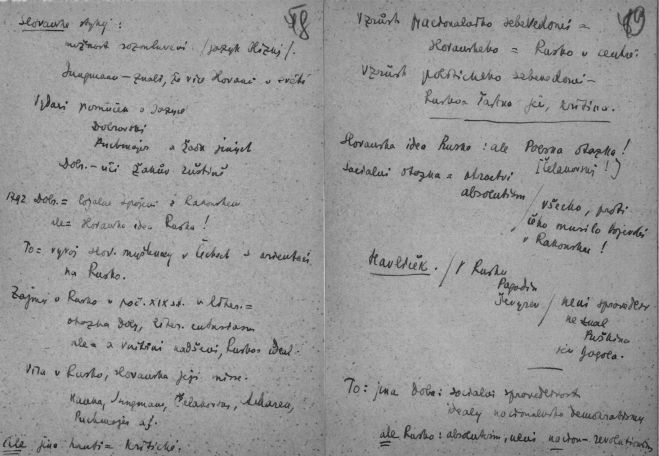 48
Slovanské styky:
možnost rozmluvení /jazyk blízký/.
Jungmann – znali, že více Slovanů v světě
Vydání pomůcek o jazyce
Dobrovský
Puchmajer a řada jiných
Dobr. – učí žáků ruštině
1792 Dobr. = loyální spojení s Rakouskem
ale = slovanská idea Rusko!
To = vývoj slov. myšlenky v Čechách s orientací
na Rusko.
Zájmy o Rusko v poč. XIX st. v liter. =
otázka doby, liter. entusiasm
ale = a vnitřní nadšení, Rusko = ideál.
Víra v Rusko, slovanská její misse.
Hanka, Jungmann, Čelakovský,
Puchmajer aj.
Ale jino hnutí = kritické.
49
Vzrůst nacionálního sebevědomí =
slovanského = Rusko v centru:
Vzrůst politického sebevědomí –
Rusko = častno její kritika.
Slovanská idea Rusko: ale Polská otázka!
(Čelakovský!)
Sociální otázka = otroctví
absolutism
/ všecko, proti
čemu musilo bojovati
v Rakousku!
Havlíček. / V Rusku
Pogodin
Ševyrev
/ není spravedliv
neznal
Puškina
ni Gogola.
To: jiná doba: sociální spravedlnost
ideály nacionálního demokratismu
ale Rusko: absolutism, není nacion– revolučním